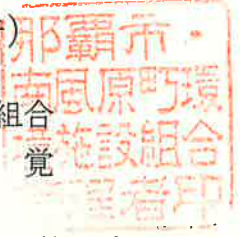 )
組合
覚
那覇市・
南風原町環
境施設組合
管理者印